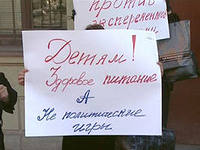 против
экспериментов
Детям!
Здоровое питание
А
Не политические
игры